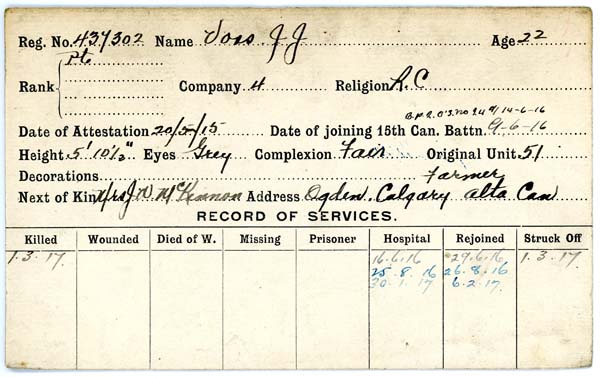 Reg. No. 437302 Name Voss J J Age 22
Pte
Rank Company 4 Religion R.C
B.P.2. O'S. No 24 d/ 14-6-16
Date of Attestation 20/5/15 Date of joining 15th Can. Battn. 9-6-16
Height 5' 10½" Eyes Grey Complexion Fair Original Unit 51
Decorations Farmer
Next of Kin Mrs J W McKinnon Address Ogden. Calgary Alta Can
RECORD OF SERVICES.
Killed Wounded Died of W. Missing Prisoner Hospital Rejoined Struck Off
1.3.17. 16.6.16 29.6.16 1.3.17.
25.8.16 26.8.16
30.1.17 6.2.17.